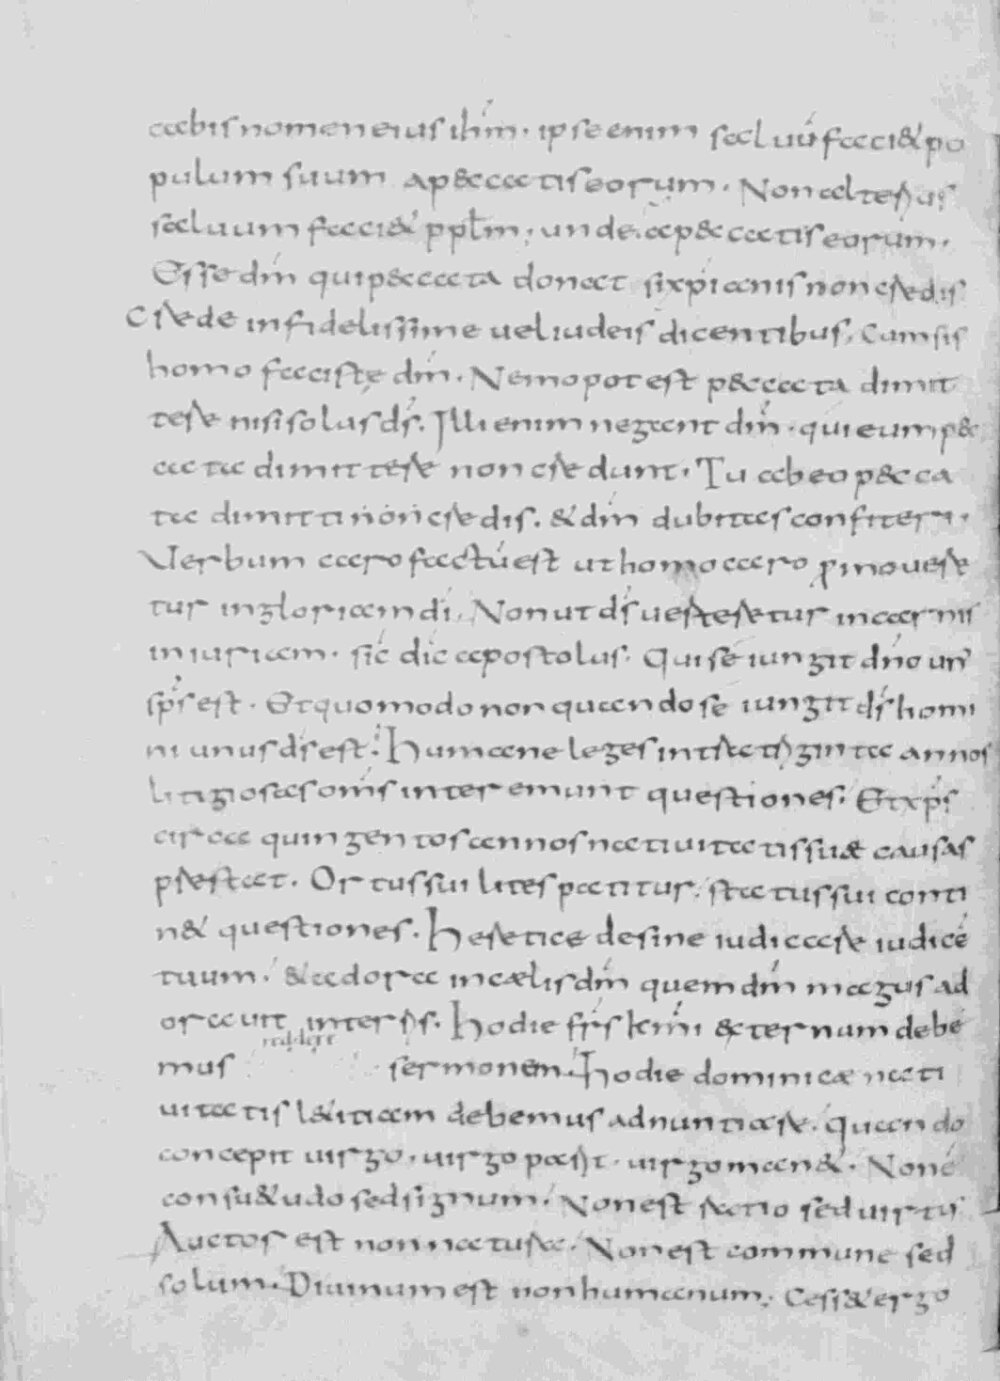 cabis nomen eius ihm̅. ipse enim saluu̅ faci& po
pulum suum a p&catis eorum. Non alterius
saluum faci& pplm̅. unde. a p&catis eorum.
Esse dm̅ qui p&cata donat. si xpianis non credis
Crede infidelissime uel iudeis dicentibus. Cum sis
homo faciste dm̅. Nemo potest p&cata dimit
tere nisi solus ds̅. Illi enim negant dm̅. qui eum p&
cata dimittere non credunt. Tu ab eo p&ca
ta dimitti non credis. & dm̅ dubitas confiteri.
Verbum caro factu̅ est ut homo caro p̱moue re
tur in gloriam di̅. Non ut ds̅ uerteretur in carnis
iniuriam. sic dic apostolus. Qui se iungit dn̅o un'
sp̅s est. Et quomodo non quando se iungit ds̅ homi
ni unus ds̅ est. Humane leges intra triginta annos
litigiosas om̅s interemunt questiones. Et xp̅s
circa quingentos annos natiuitatis su& causas
prestat. Ortus sui lites patitur. status sui conti
n& questiones. Heretice desine iudicare iudice̅
tuum. & adora in cælis dm̅ quem dm̅ magus ad
orauit in terris. Hodie fr̅s km̅i &ternum debe
mus reddere sermonem. Hodie dominicæ nati
uitatis l&itiam debemus adnuntiare. Quando
concepit uirgo. uirgo parit. uirgo man&. Non e̅
consu&udo sed signum. Non est ratio sed uirtus
Auctor est non natura. Non est commune sed
solum. Diuinum est non humanum. Cess& ergo